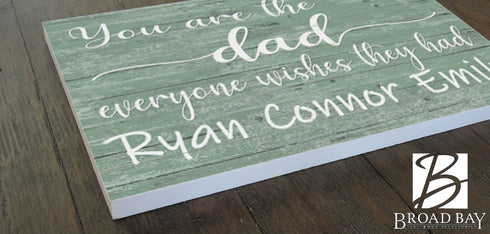 You are the
dad
everyone wishes they had
Ryan Connor Emil
B
BROAD BAY